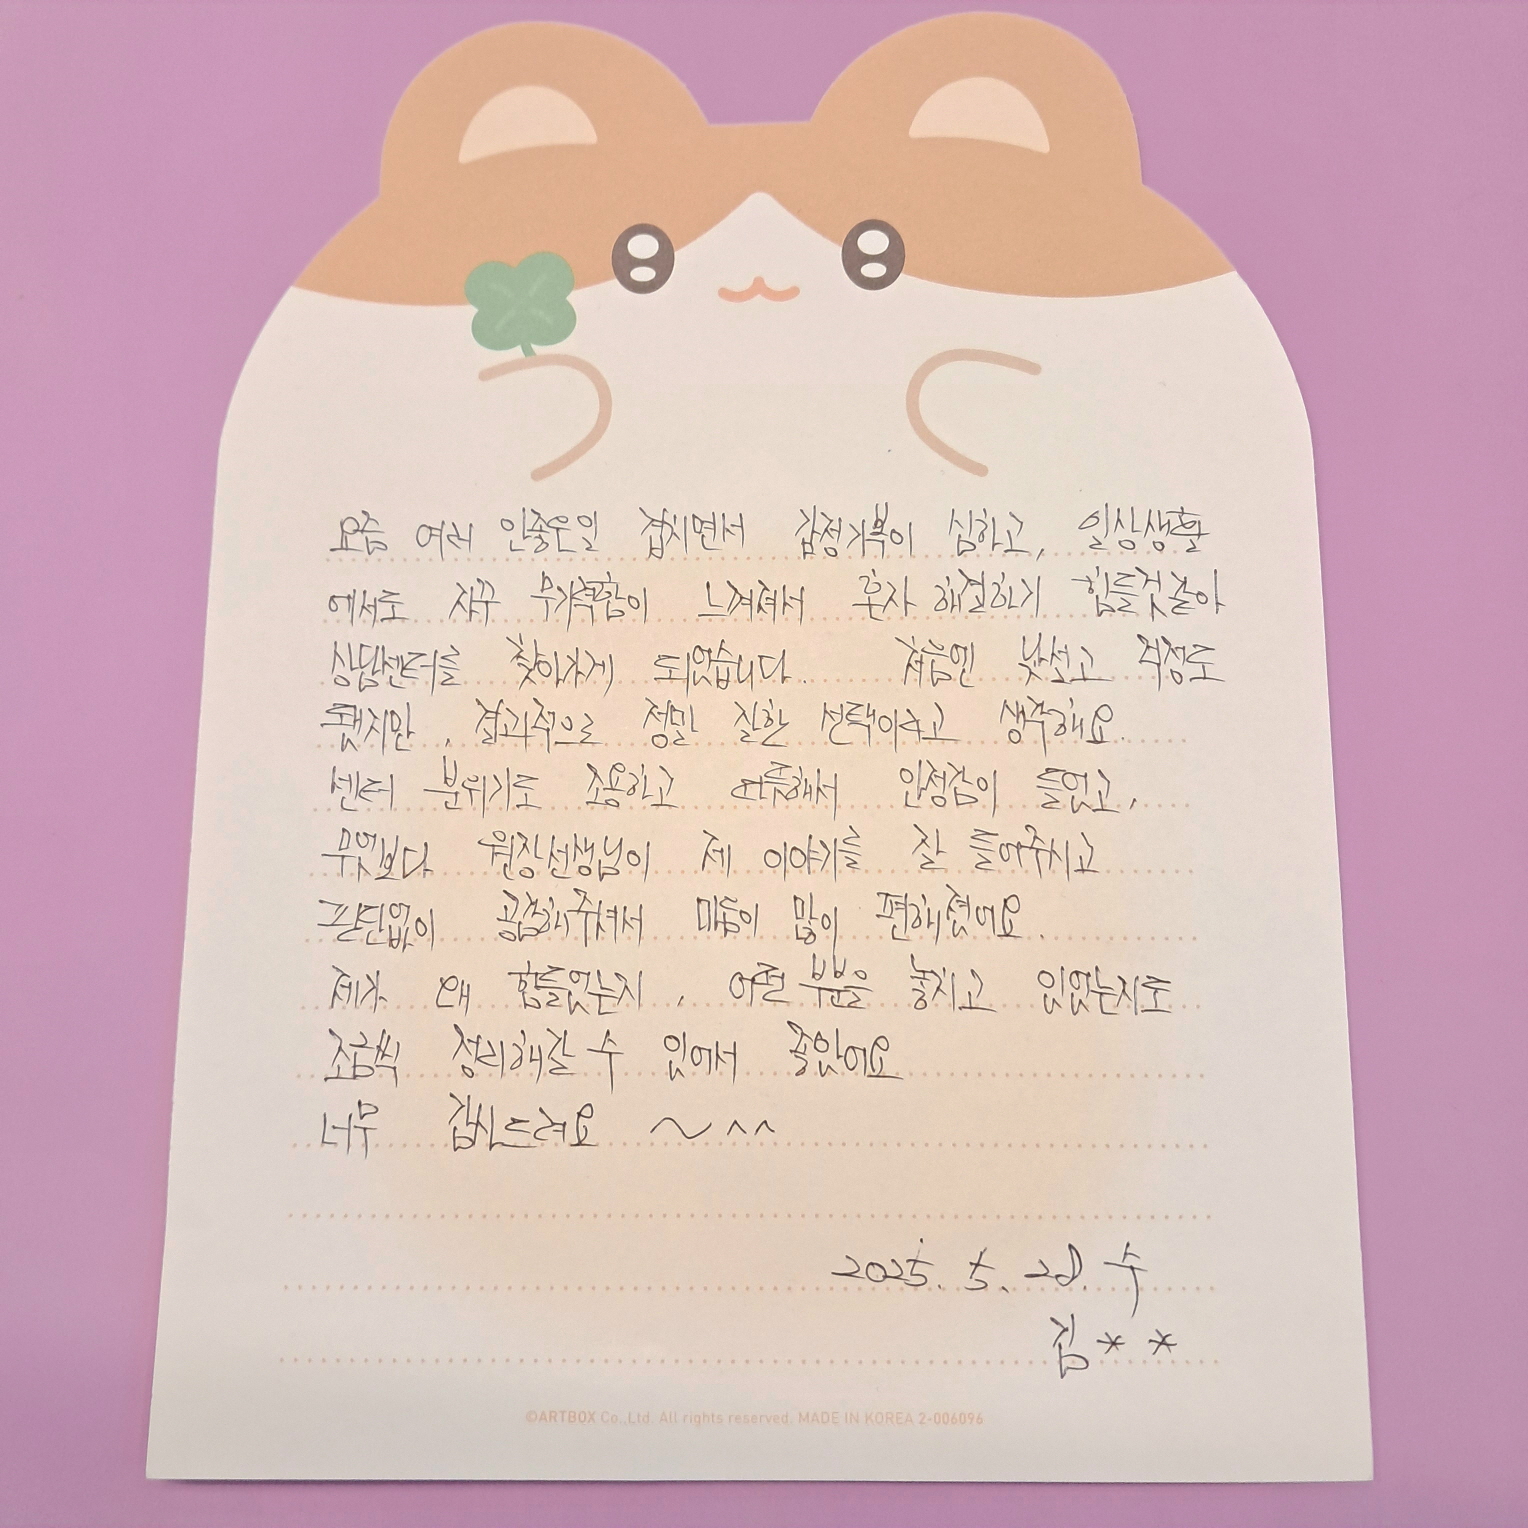 요즘 여러 안좋은일 겹치면서 감정기복이 심하고, 일상생활
에서도 자꾸 무기력함이 느껴져서 혼자 해결하기 힘들것같아
상담센터를 찾아가게 되었습니다. 처음엔 낯설고 걱정도
됐지만, 결과적으로 정말 잘한 선택이라고 생각해요.
센터 분위기도 조용하고 따뜻해서 안정감이 들었고,
무엇보다 원장선생님이 제 이야기를 잘 들어주시고
판단없이 공감해주셔서 마음이 많이 편해졌어요.
제가 왜 힘들었는지, 어떤 부분을 놓치고 있었는지도
조금씩 정리해갈 수 있어서 좋았어요
너무 감사드려요 ~^^
2025. 5. 28. 수
김**
©ARTBOX Co.,Ltd. All rights reserved. MADE IN KOREA 2-006096